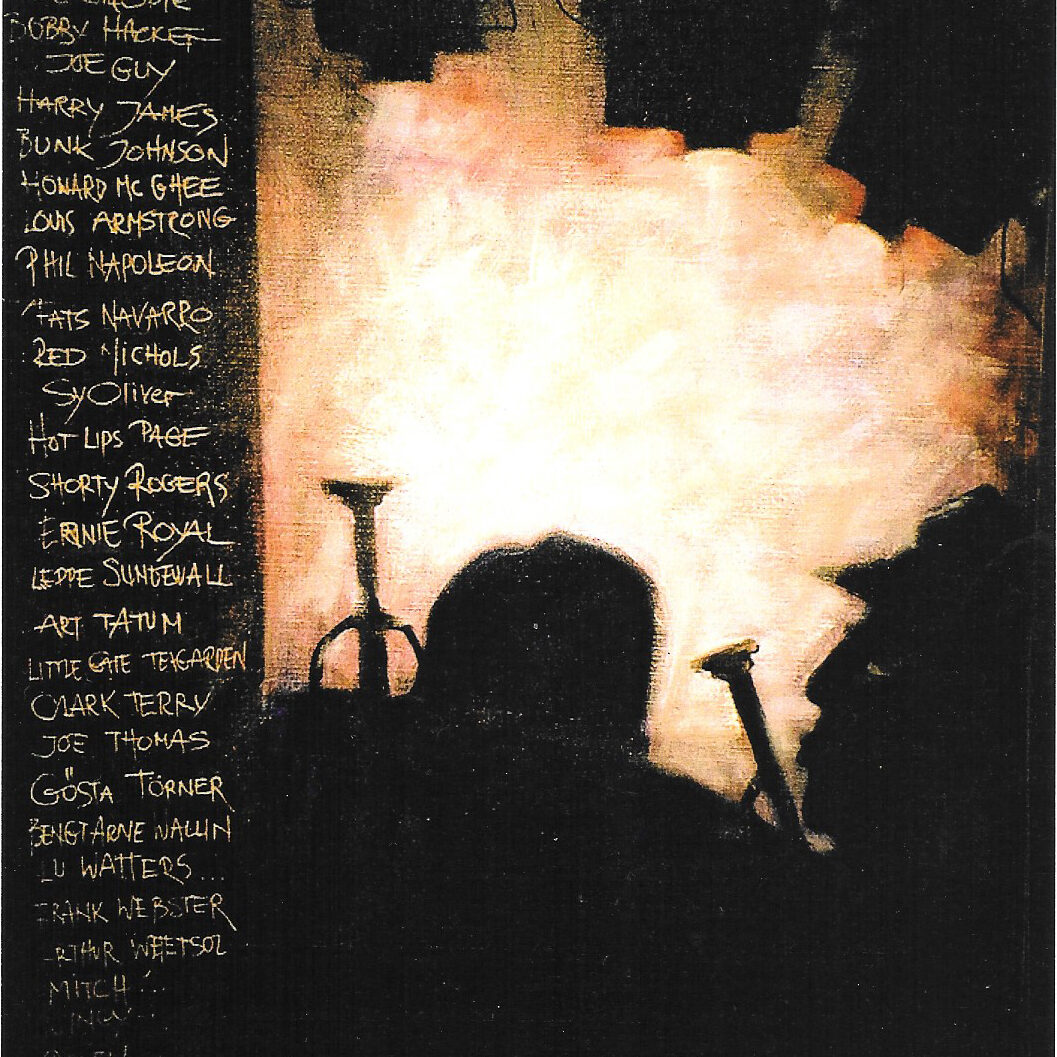 BOBBY HACKET
JOE GUY
HARRY JAMES
BUNK JOHNSON
HOWARD MC GHEE
LOUIS ARMSTRONG
PHIL NAPOLEON
FATS NAVARRO
RED NICHOLS
Sy Oliver
HOT LIPS PAGE
SHORTY ROGERS
ERNIE ROYAL
LEPPE SUNDEWALL
ART TATUM
LITTLE CATE TEAGARDEN
CLARK TERRY
JOE THOMAS
GÖSTA TÖRNER
BENGT ARNE WALLIN
LU WATTERS...
FRANK WEBSTER
ARTHUR WEETSOL
MITCH